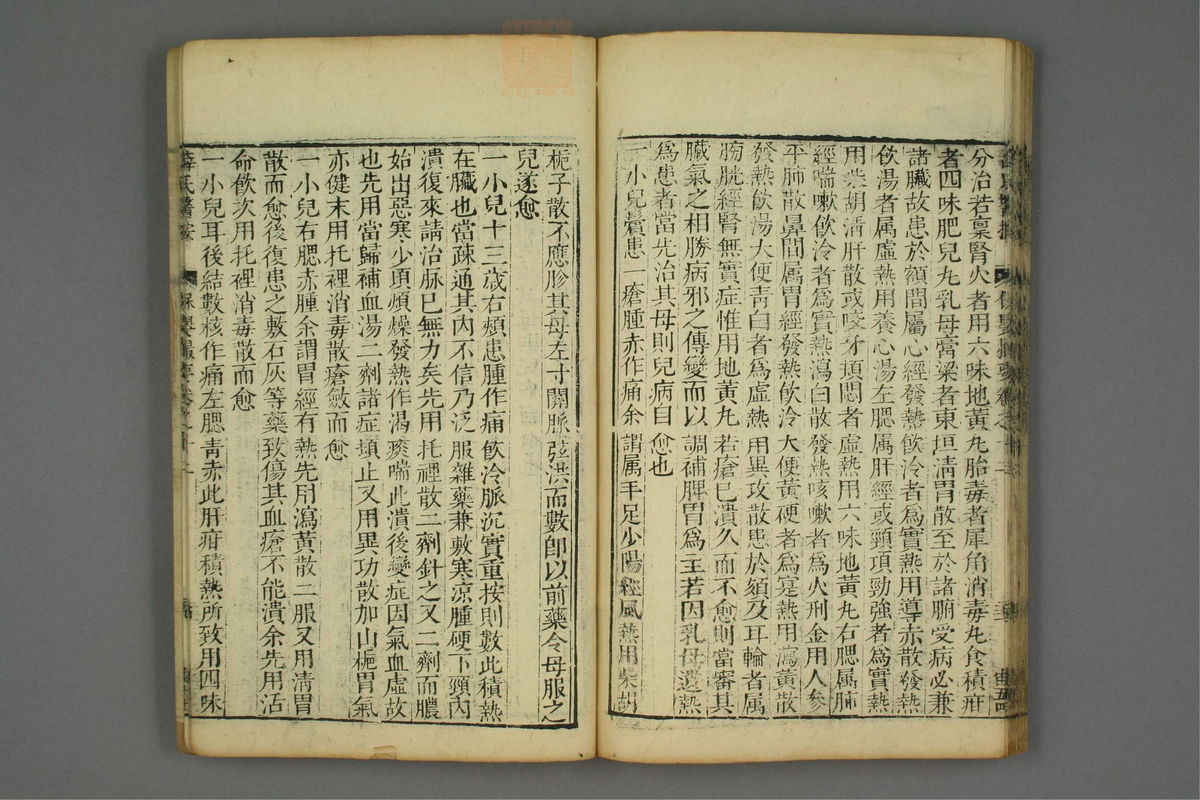 分治若稟腎火者用六味地黃丸胎毒者犀角消毒丸食積疳
者四味肥兒丸乳母膏梁者東垣清胃散至於諸腑受病必兼
諸臟故患於額間屬心經發熱飲冷者為實熱用導赤散發熱
飲湯者屬虛熱用養心湯左腮屬肝經或頸項勁強者為實熱
用柴胡清肝散或咬牙頓悶者虛熱用六味地黃丸右腮属肺
經喘嗽飲冷者為實熱瀉白散發熱咳嗽者為火刑金用人參
平肺散鼻間属胃經發熱飲冷大便黃硬者為寔熱用瀉黃散
發熱飲湯大便青白者為虛熱用異攻散患於頦及耳輪者属
膀胱經腎無實症惟用地黃丸若瘡已潰久而不愈則當審其
臟氣之相勝病邪之傳變而以調補脾胃為主若因乳母遺熱
為患者當先治其母則兒病自愈也
一小兒鬢患一瘡腫赤作痛余謂属手足少陽經風熱用柴胡
梔子散不應胗其母左寸關脈弦洪而數卽以前藥令母服之
兒遂愈
一小兒十三歲右頰患腫作痛飲冷脈沉實重按則數此積熱
在臟也當疎通其內不信乃泛服雜藥兼敷寒涼腫硬下頸內
潰復來請治脉已無力矣先用托裡散二劑針之又二劑而膿
始出惡寒少頃煩燥發熱作渴痰喘此潰後變症因氣血虛故
也先用當歸補血湯二劑諸症頓止又用異功散加山梔胃氣
亦健末用托裡消毒散瘡斂而愈
一小兒右腮赤腫余謂胃經有熱先用瀉黃散二服又用清胃
散而愈後復患之敷石灰等藥致傷其血瘡不能潰余先用活
命飲次用托裡消毒散而愈
一小兒耳後結數核作痛左腮青赤此肝疳積熱所致用四味
薛氏醫按 保嬰撮要卷之十二